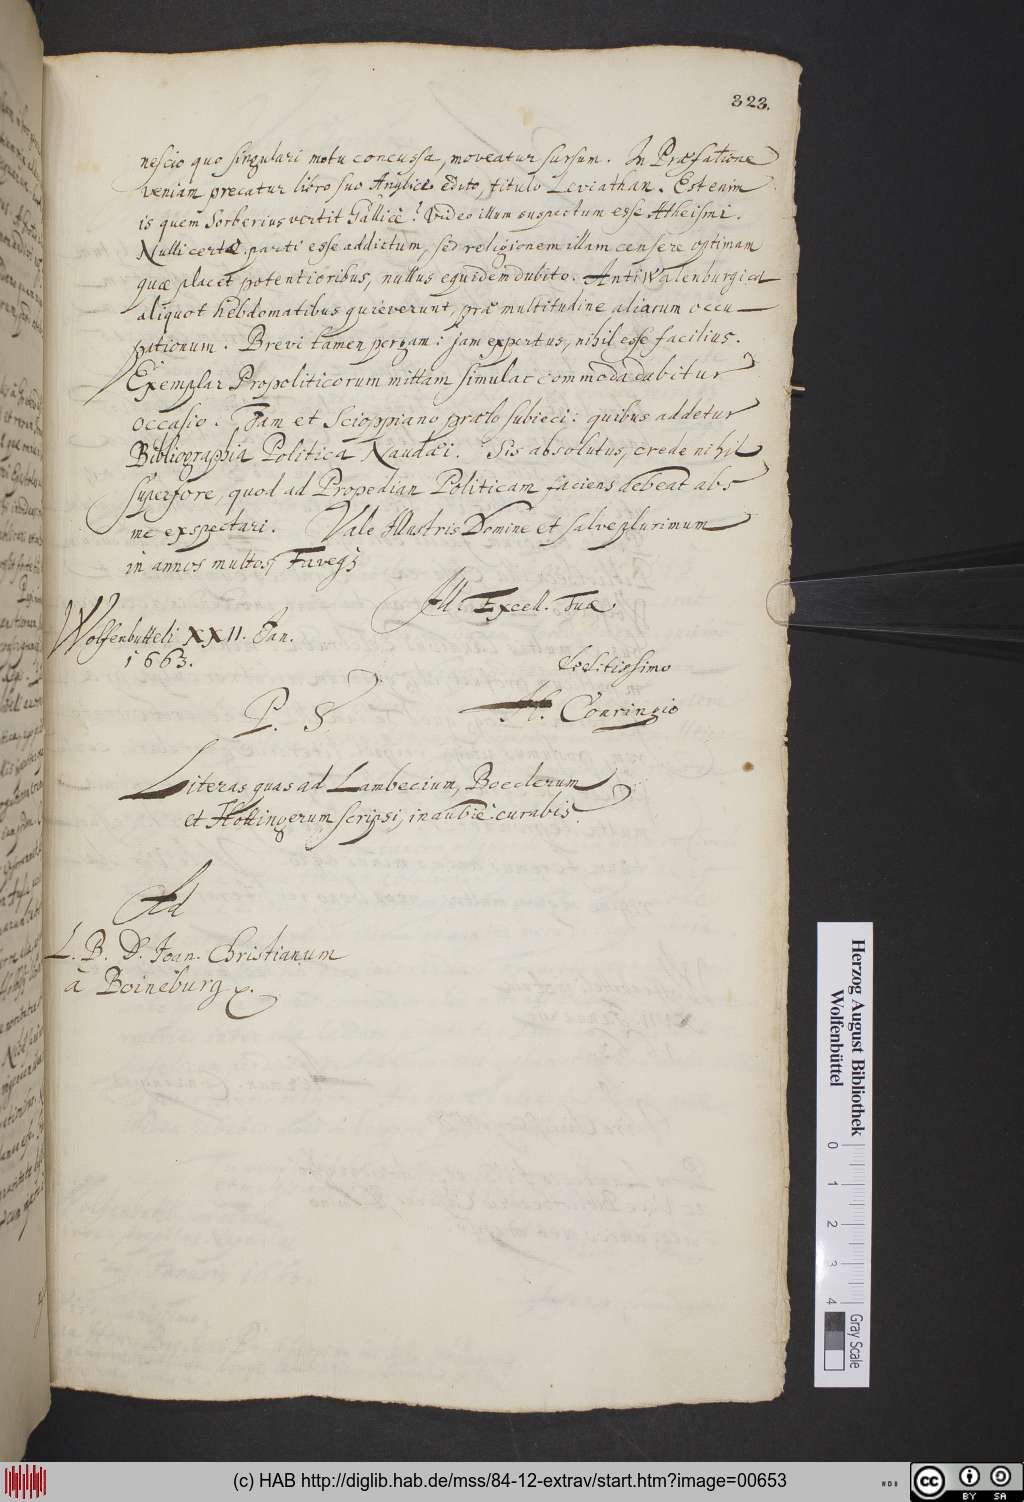 323.
nescio quo singulari motu concussa, moveatur sursum. In Præfatione
veniam precatur libro suo Anglice edito, titulo Leviathan. Est enim
is quem Sorberius vertit Gallicè? Video illum suspectum esse Atheismi.
Nulli certæ parti esse addictum, sed religionem illam censere optimam
quæ placet potentioribus, nullus equidem dubito. AntiWalenburgica
aliquot hebdomatibus quieverunt, præ multitudine aliarum occu-
pationum. Brevi tamen pergam: jam expertus, nihil esse facilius.
Exemplar Propoliticorum mittam simulac commoda dabitur
occasio. Jam et Scioppiano prælo subieci: quibus addetur
Bibliographia Politica Naudæi. Sis absolutus, crede nihil
superfore, quod ad Propediam Politicam faciens debeat abs
me exspectari. Vale Illustris Domine et salve plurimum
in annos multos,
Ill. Excell. Tuæ
Wolfenbutteli XXII. Jan.
1663.
deditissimo
H. Conringio
P. S.
Literas quas ad Lambecium, Boeclerum
et Hottingerum scripsi, curabis.
Ad
L. B. D. Joan. Christianum
à Boineburg
Herzog August Bibliothek
Wolfenbüttel
0 1 2 3 4
Gray Scale
(c) HAB http://diglib.hab.de/mss/84-12-extrav/start.htm?image=00653
cc BY SA